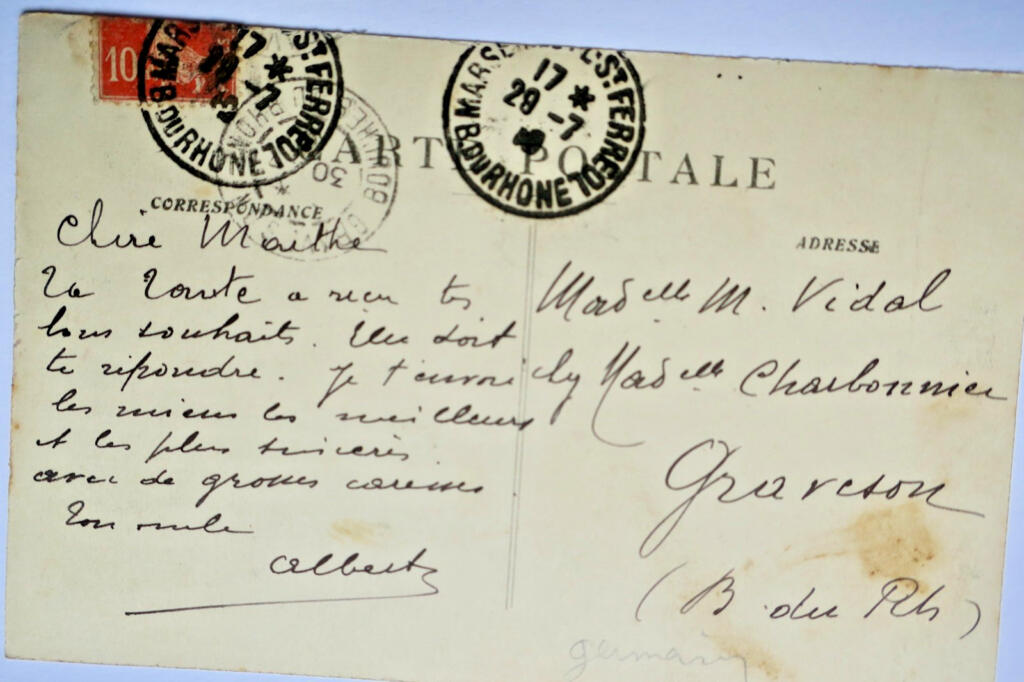 10
MARSEILLE St FERREOL
17 *
29 -7
B. DU RHONE
MARSEILLE St FERREOL
17 *
29 -7
B. DU RHONE
30
CARTE POSTALE
CORRESPONDANCE
ADRESSE
Chère Marthe
Ta Tante a reçu tes
bons souhaits. Elle doit
te répondre. Je t'envoie
les miens les meilleurs
et les plus sincères
avec de grosses caresses
Ton oncle
Albert
Madelle M. Vidal
chez Madelle Charbonnier
Graveson
(B. du Rh)
germain